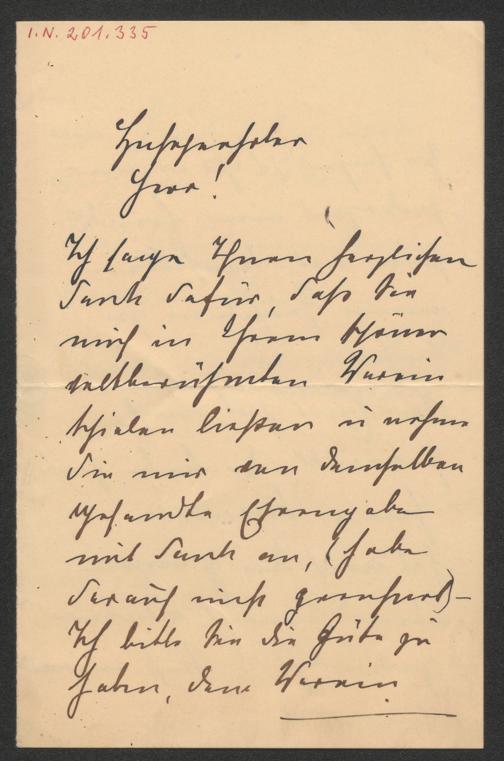 I.N. 201.335
Hochgeehrter
Herr!
Ich sage Ihnen herzlichen
Dank dafür, daß Sie
mich in Ihrem schönen
weltberühmten Verein
spielen ließen u nehme
die mir von demselben
gesandte Ehrengabe
mit Dank an, (habe
darauf nicht gerechnet) –
Ich bitte Sie die Güte zu
haben, dem Verein